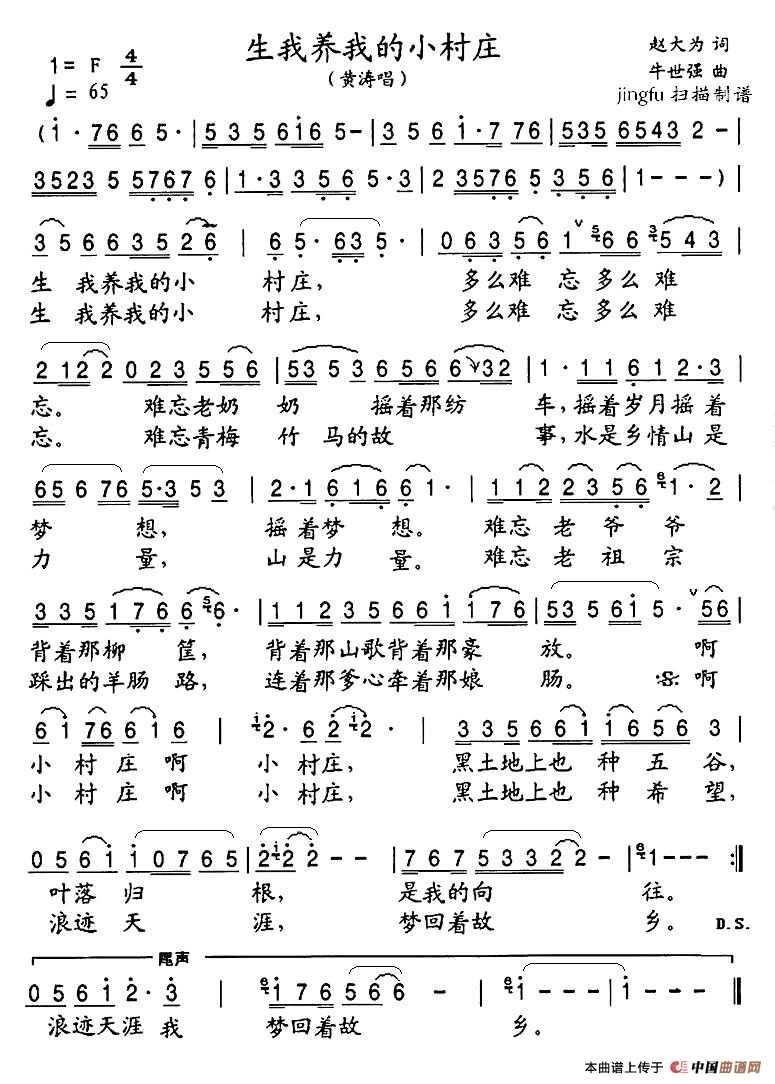 生我养我的小村庄
(黄涛唱)
1= F 4/4
♩= 65
赵大为 词
牛世强 曲
jingfu 扫描制谱
(i· 76 6 5· | 5 3 5 6i6 5· | 3 5 6 i·7 76 | 535 6543 2 - |
3523 5 5767 6 | 1·3 3 5 6 5·3 | 2 3567 6 5 356 | 1 - - - )|
3 5 6 635 26 | 6 5· 63 5· | 0 6 3 5 6 1 ∨ 6 6 3 5 4 3 |
生 我养我的小 村庄, 多么难 忘 多么 难
生 我养我的小 村庄, 多么难 忘 多么 难
2 12 2 0 2 3 5 5 6 | 53 5 3 6 5 6 6 32 | 1· 1 1 6 1 2·3 |
忘。 难忘老奶 奶 摇着那纺 车,摇着岁月摇着
忘。 难忘青梅 竹 马的故 事,水是乡情山是
65 6 76 5·3 5 3 | 2·1 6 1 6 6 1· | 1 1 2 2 3 5 6 1·2 |
梦 想, 摇着梦 想。 难忘 老 爷 爷
力 量, 山是力 量。 难忘 老 祖 宗
3 3 5 1 7 6 6 6· | 1 1 2 3 5 6 6 i i 7 6 | 53 5 6i 5· ∨ 56 |
背着那柳 筐, 背着那山歌背着那豪 放。 啊
踩出的羊肠 路, 连着那爹心牵着那娘 肠。 啊
6 i 76 6 i 6 | 2· 6 2 2· | 3 3 5 6 6 i i 6 5 6 3 |
小 村 庄 啊 小 村庄, 黑土地上也 种 五 谷,
小 村 庄 啊 小 村庄, 黑土地上也 种 希 望,
0 5 6 i i 0 7 6 5 | 2·2 2 - - | 7 6 7 5 3 3 2 2 - | 1 - - - :||
叶落 归 根, 是我的向 往。
浪迹 天 涯, 梦回着故 乡。 D.S.
尾声
0 5 6 i 2· 3 | i 7 6 5 6 6 - | i - i - ||
浪迹天涯 我 梦回着故 乡。
本曲谱上传于 中国曲谱网